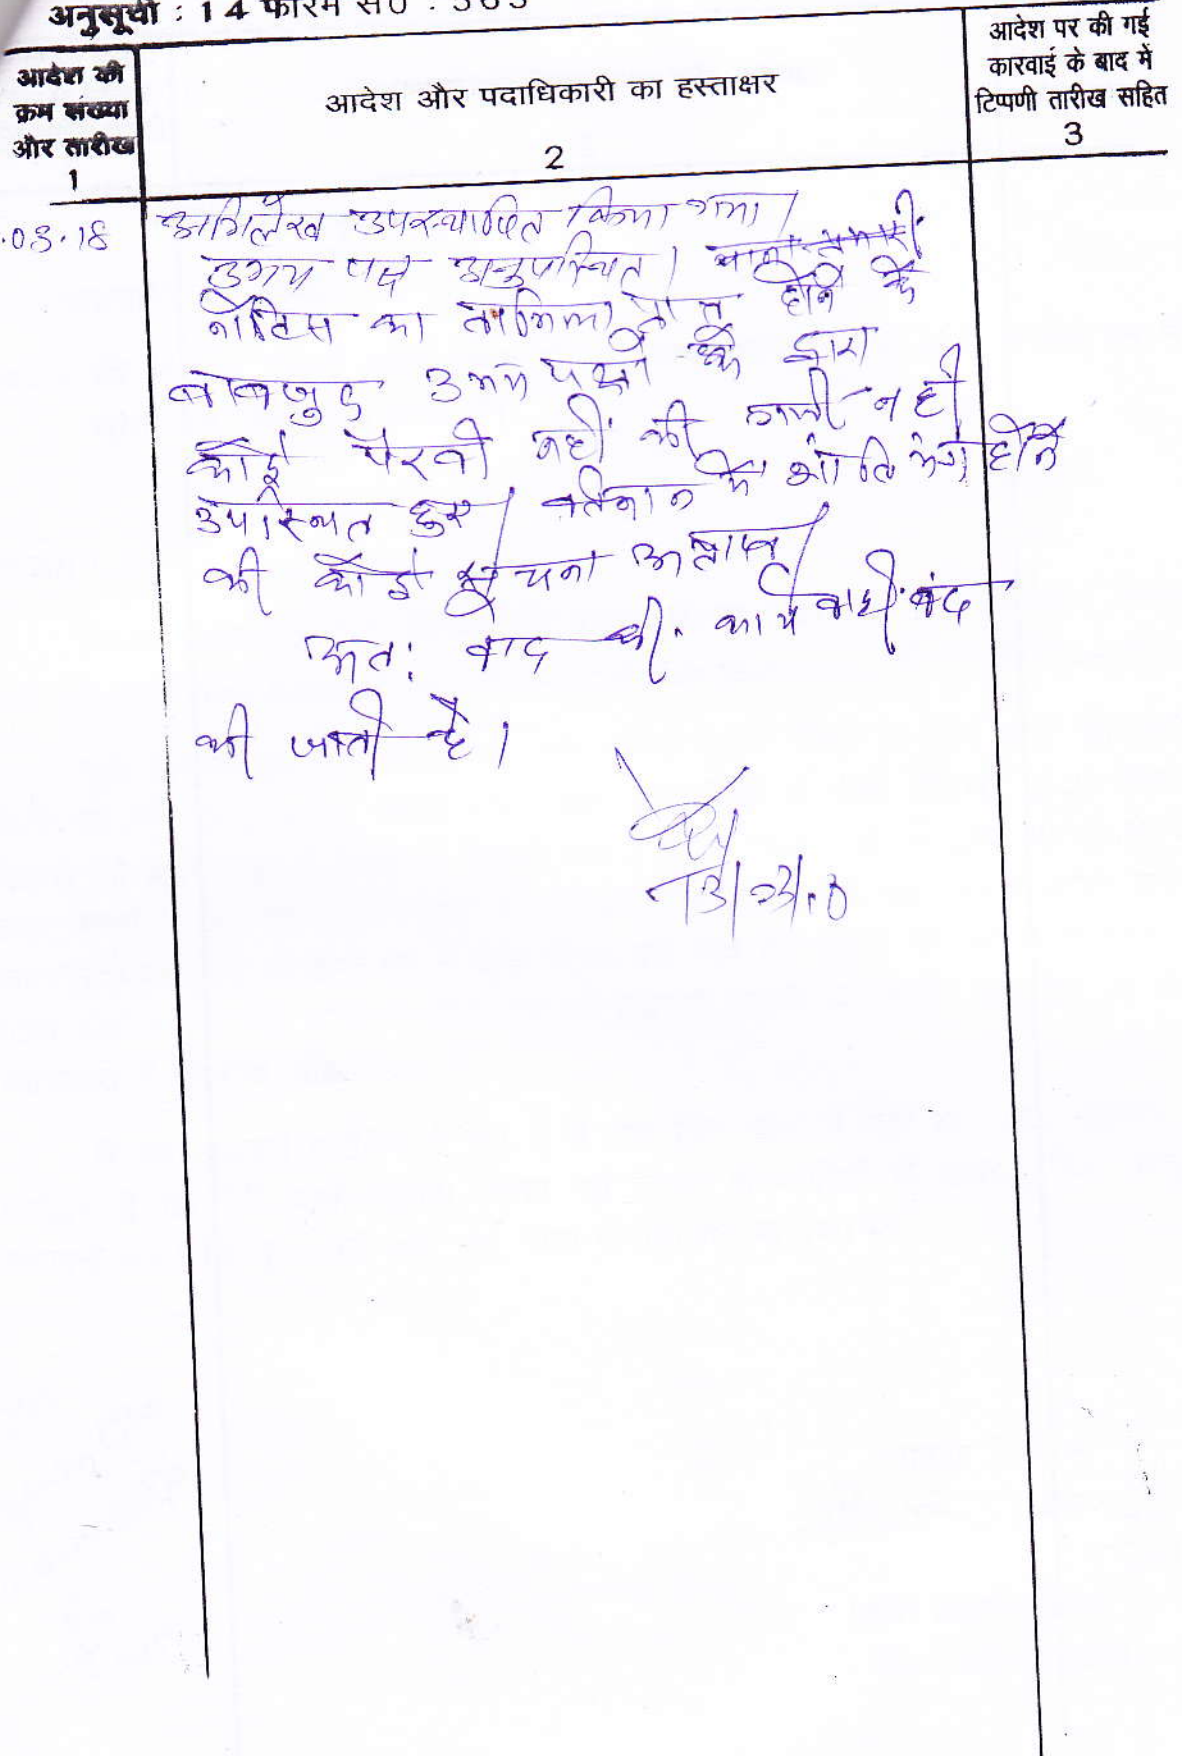 अनुसूची : 14 फारम सं० : 563
आदेश की
क्रम संख्या
और तारीख
1
आदेश और पदाधिकारी का हस्ताक्षर
2
आदेश पर की गई
कारवाई के बाद में
टिप्पणी तारीख सहित
3
.03.18
अभिलेख उपस्थापित किया गया।
उभय पक्ष अनुपस्थित।
नोटिस का तामिला प्राप्त होने के
बावजुद उभय पक्षों के द्वारा
कोई पैरवी नहीं की न ही
उपस्थित हुए। वर्तमान में होने
की कोई सूचना अप्राप्त।
अत: वाद की कार्यवाही बंद
की जाती है।